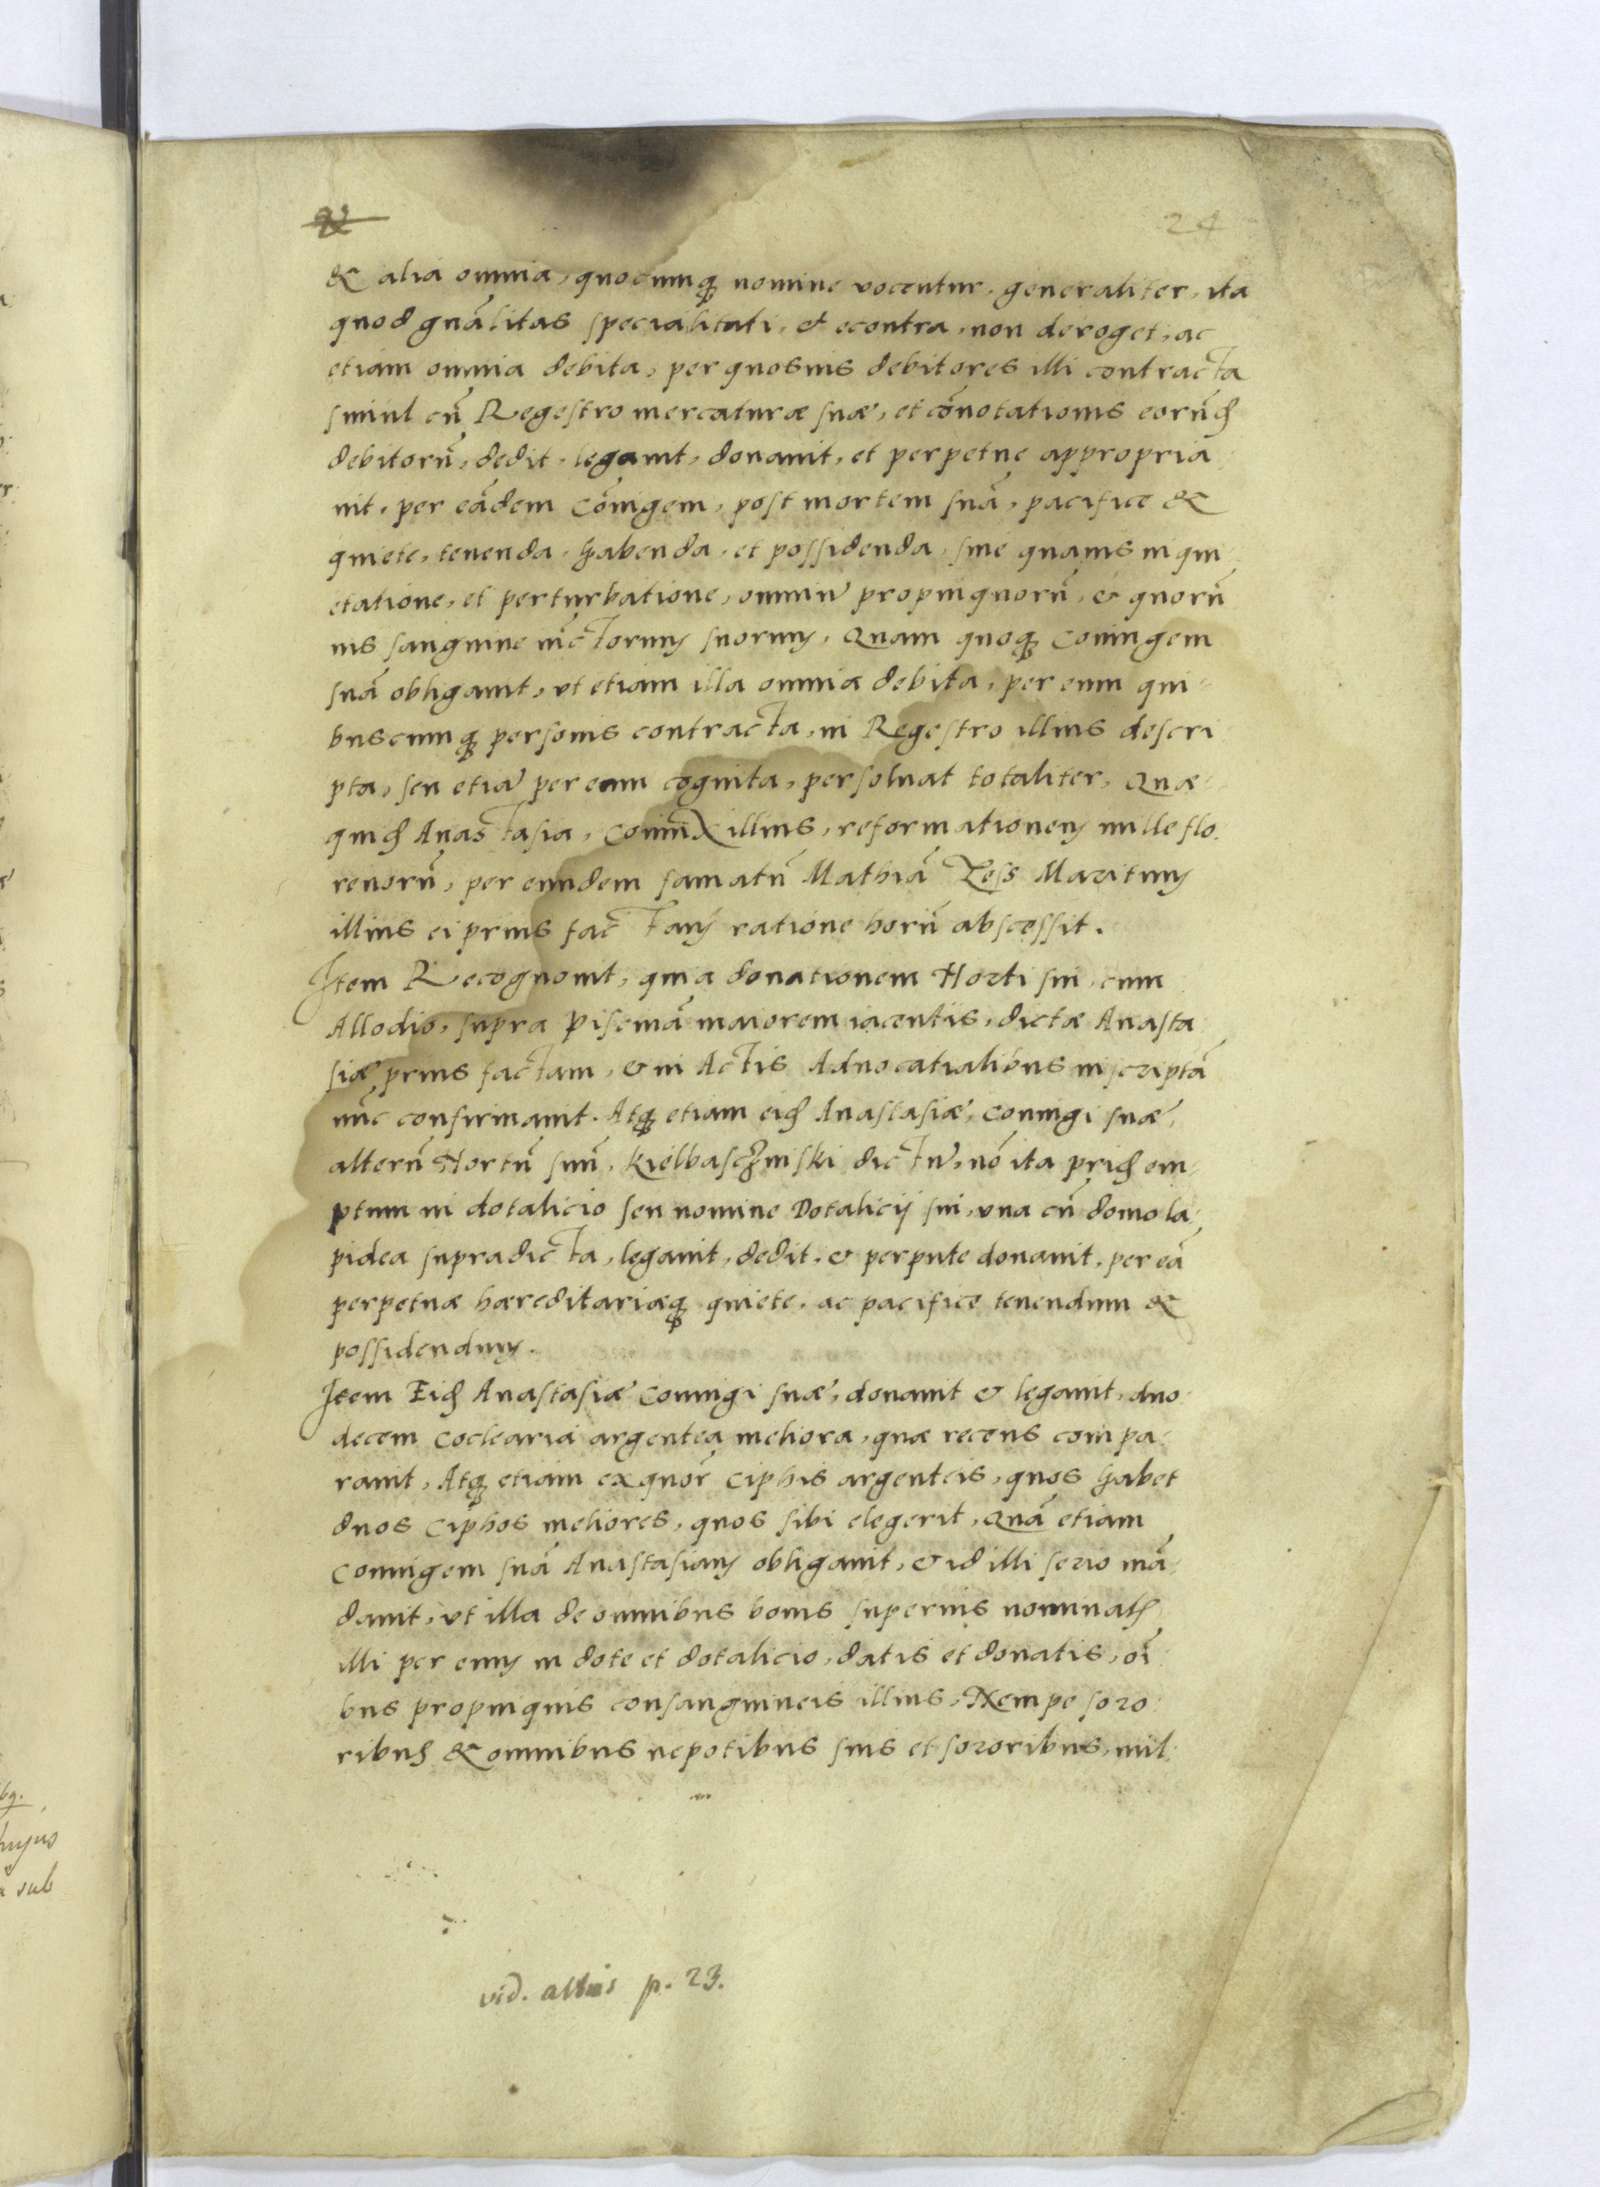 24
& alia omnia, quocunq; nomine vocentur, generaliter, ita
quod gnãlitas specialitati, et econtra, non deroget, ac
etiam omnia debita, per quosuis debitores illi contracta
simul cũ Regestro mercaturæ suæ, et cõnotationis eorũd
debitorũ, dedit, legauit, donauit, et perpetue appropria
uit, per eãdem Cõiugem, post mortem suã, pacifice &
quiete, tenenda, habenda, et possidenda, sine quauis inqui
etatione, et perturbatione, omniũ propinquorũ, & quorũ
uis sanguine iũctorum suorum, Quam quoq; Coniugem
suã obligauit, vt etiam illa omnia debita, per eum qui-
buscumq; personis contracta, in Regestro illius descri
pta, seu etiã per eam cognita, persoluat totaliter, Quæ
quid Anastasia, Coniũx illius, reformationem mille flo-
renorũ, per eundem famatũ Mathiã Zess Maritum
illius ei prius factam ratione horũ abscessit.
Item Recognouit, quia donationem Horti sui, cum
Allodio, supra Piscinã maiorem iacentis, dictæ Anasta
siæ prius factam, & in Actis Aduocatialibus inscriptã
nũc confirmauit. Atq; etiam eid Anastasiæ, Coniugi suæ,
alterũ Hortũ suũ, Kielbaschinski dictũ, nõ ita prid em-
ptum in dotalicio seu nomine Dotalicij sui, vna cũ domo la-
pidea supradicta, legauit, dedit, & perpute donauit, per eã
perpetuæ hæreditariæq; quiete, ac pacifice tenendum &
possidendum.
Item Eid Anastasiæ Coniugi suæ, donauit & legauit, duo
decem Coclearia argentea meliora, quæ recens compa-
rauit, Atq; etiam ex quor̃ Ciphis argenteis, quos habet
duos Ciphos meliores, quos sibi elegerit, Quã etiam
Coniugem suã Anastasiam obligauit, & id illi serio mã-
dauit, vt illa de omnibus bonis superius nominat
illi per eum in dote et dotalicio, datis et donatis, oĩ-
bus propinquis consanguineis illius, Nempe soro-
ribus & omnibus nepotibus suis et sororibus, mil-
vid. altius p. 23.